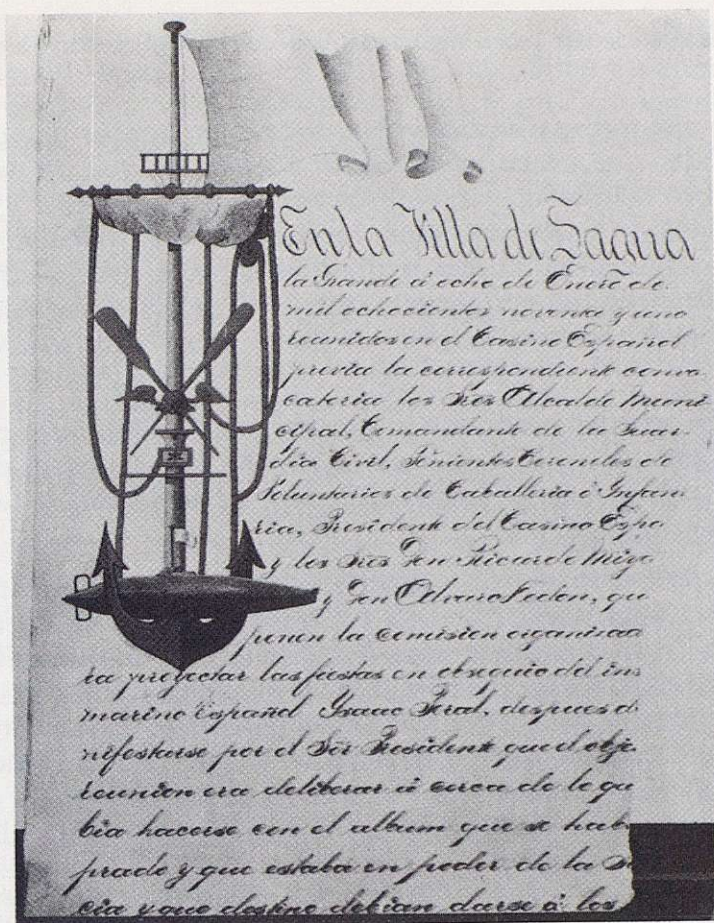 En la Villa de Sagua
la Grande á ocho de Enero de
mil ochocientos noventa y uno
reunidos en el Casino Español
previa la correspondiente convo
catoria los Sres Alcalde Muni
cipal, Comandante de la Guar
dia Civil, Tenientes Coroneles de
Voluntarios de Caballeria é Infan
ria, Presidente del Casino Espa
y los Sres Don Ricardo
y Don Alvaro Ledon, que
ponen la comision organizad
ra proyectar las fiestas en obsequio del ins
marino español Isaac Peral, despues d
nifestarse por el Sor Presidente que el obje
reunion era deliberar á cerca de lo que
bia hacerse con el album que se hab
prado y que estaba en poder de la
cia y que destino debian darse á los